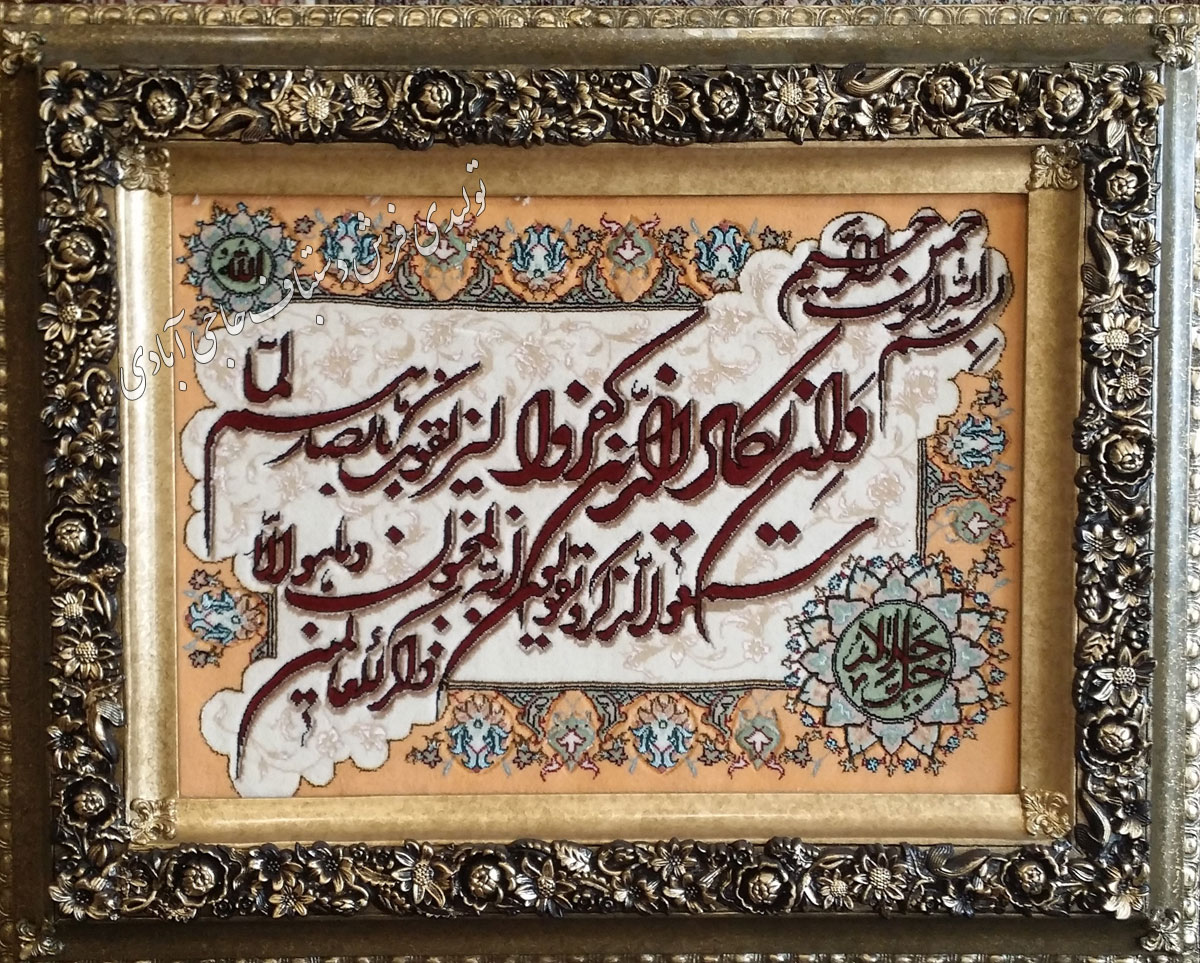 بسم الله الرحمن الرحیم
وان یکاد الذین کفروا لیزلقونک بابصارهم لما
سمعوا الذکر و یقولون انه لمجنون و ما هو الا
ذکر للعالمین
الله
جل جلاله
تولیدی فرش دستباف حاجی آبادی